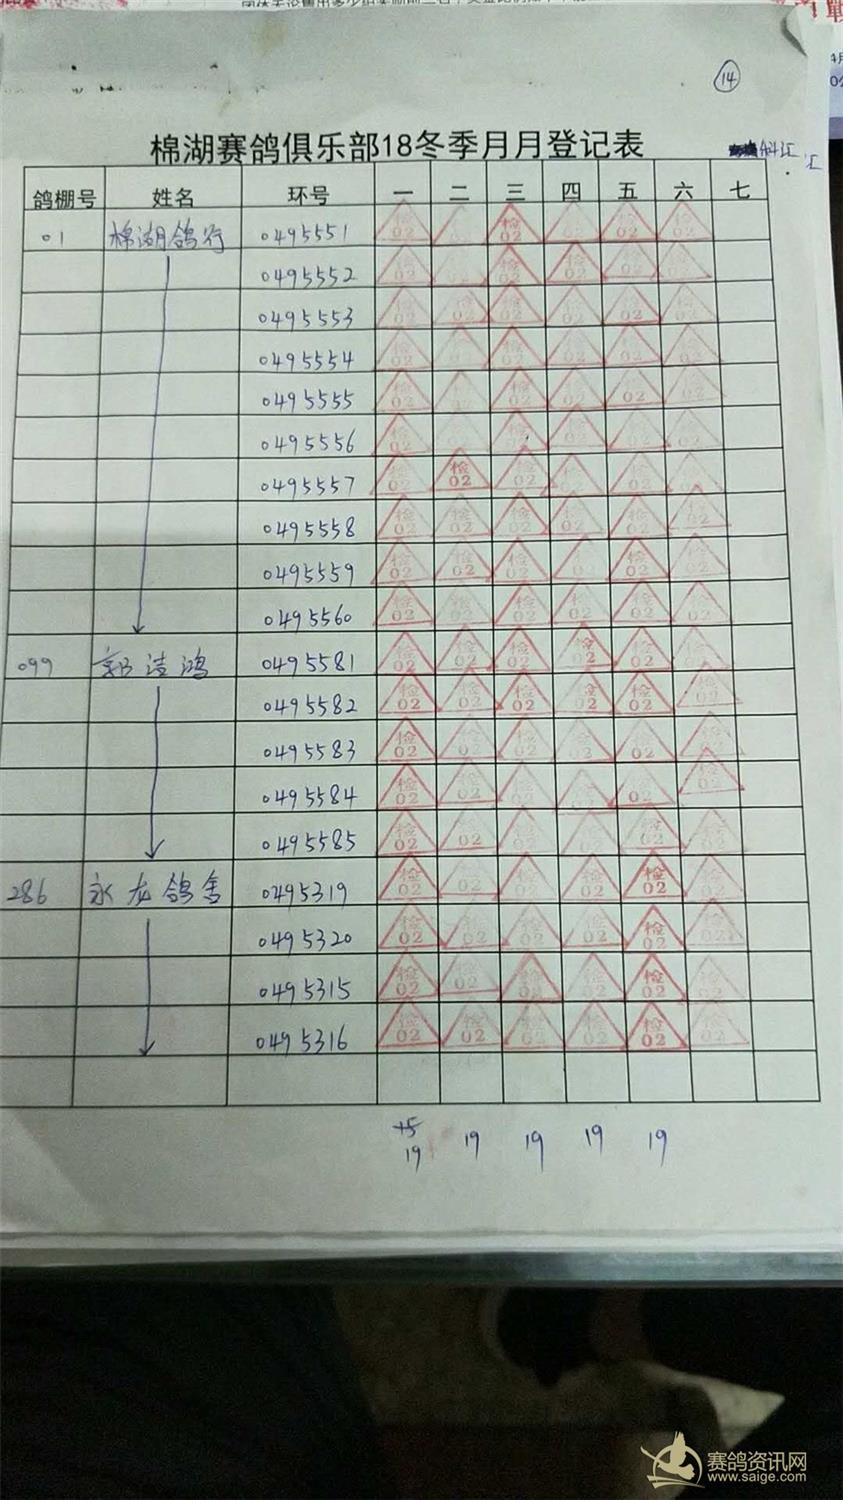 14
棉湖赛鸽俱乐部18冬季月月登记表
鸽棚号 姓名 环号 一 二 三 四 五 六 七
01 棉湖鸽行 0495551 检02 检02 检02 检02 检02 检02
0495552 检02 检02 检02 检02 检02 检02
0495553 检02 检02 检02 检02 检02 检02
0495554 检02 检02 检02 检02 检02 检02
0495555 检02 检02 检02 检02 检02 检02
0495556 检02 检02 检02 检02 检02 检02
0495557 检02 检02 检02 检02 检02 检02
0495558 检02 检02 检02 检02 检02 检02
0495559 检02 检02 检02 检02 检02 检02
0495560 检02 检02 检02 检02 检02 检02
099 郭洁鸿 0495581 检02 检02 检02 检02 检02 检02
0495582 检02 检02 检02 检02 检02 检02
0495583 检02 检02 检02 检02 检02 检02
0495584 检02 检02 检02 检02 检02 检02
0495585 检02 检02 检02 检02 检02 检02
286 永龙鸽舍 0495319 检02 检02 检02 检02 检02 检02
0495320 检02 检02 检02 检02 检02 检02
0495315 检02 检02 检02 检02 检02 检02
0495316 检02 检02 检02 检02 检02 检02
+5
19 19 19 19 19
赛鸽资讯网
www.saige.com